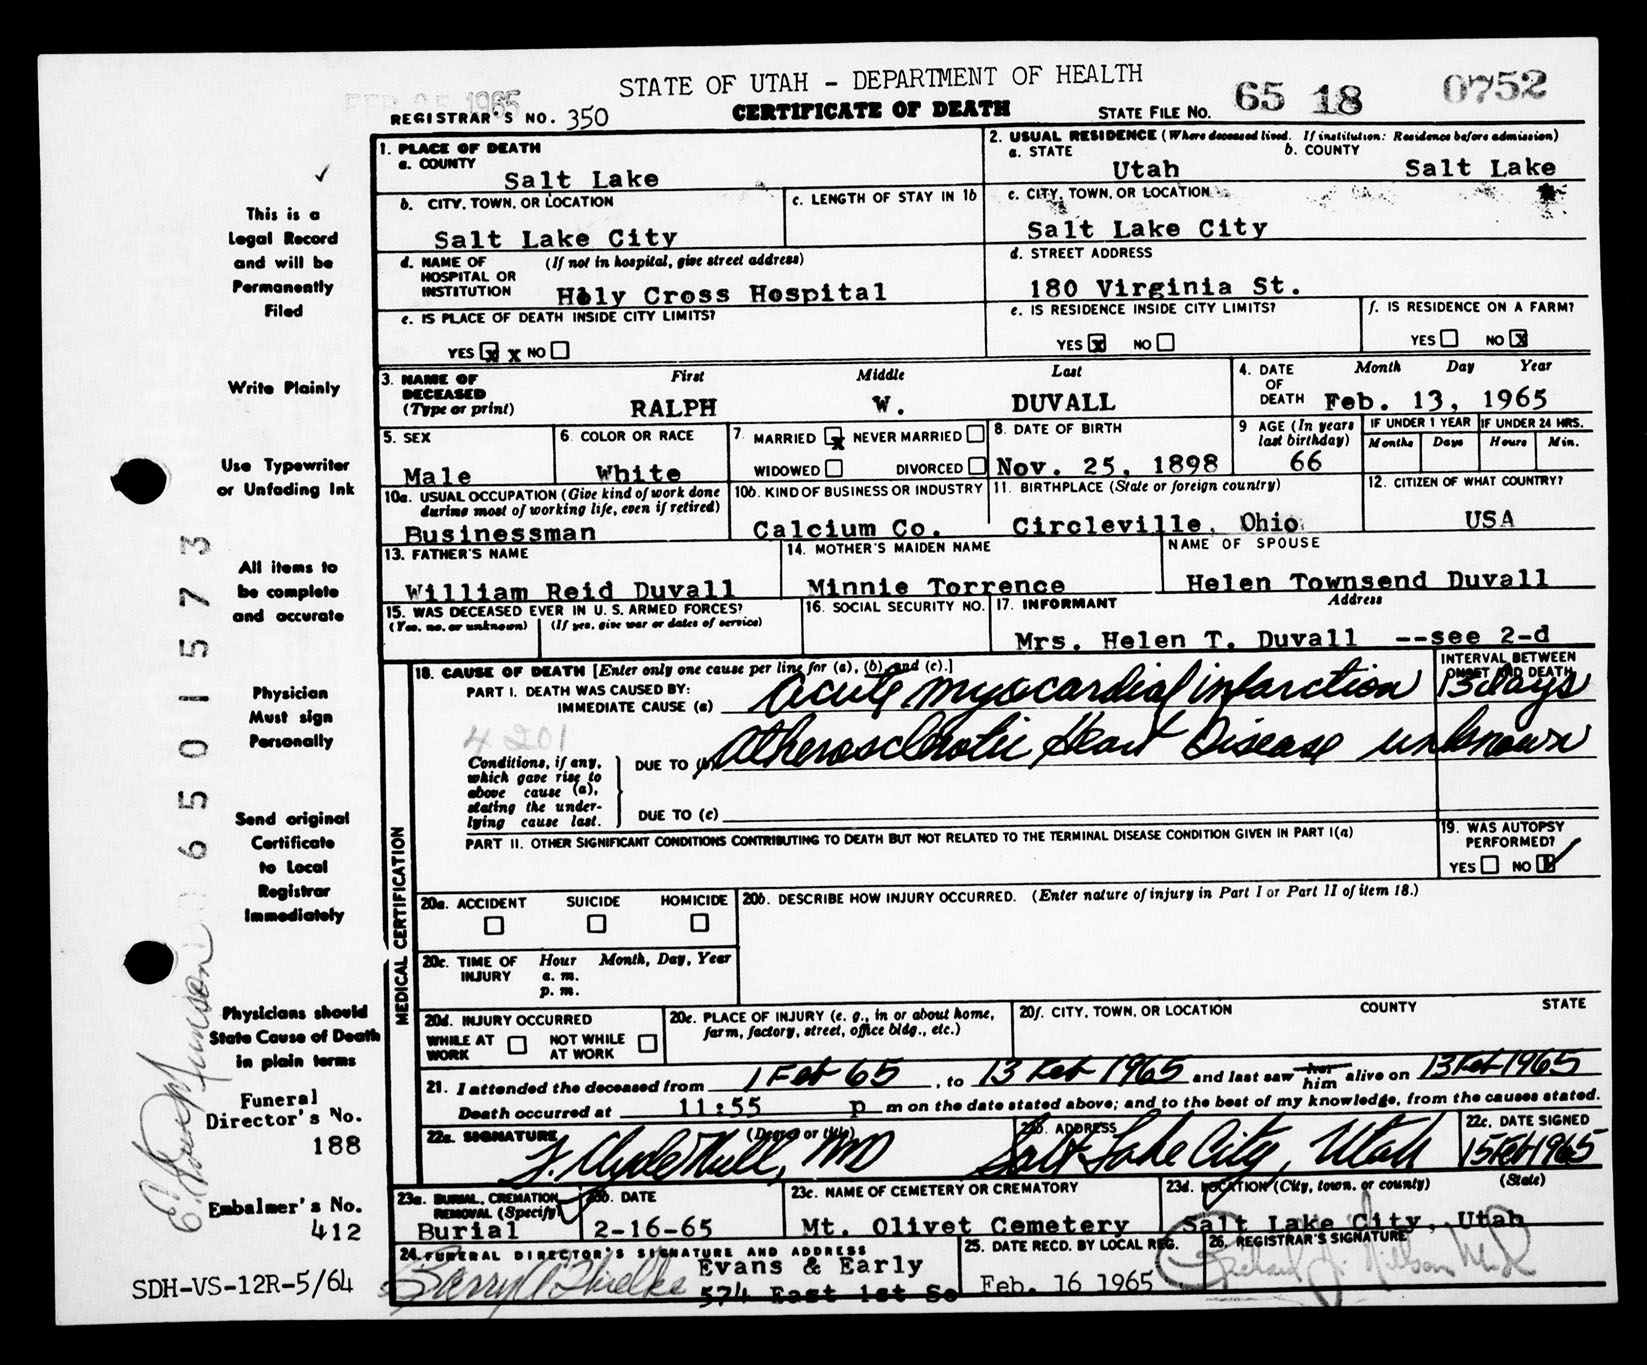 STATE OF UTAH - DEPARTMENT OF HEALTH
FEB 25 1965
REGISTRAR'S NO. 350
CERTIFICATE OF DEATH
STATE FILE NO. 65 18 0752
1. PLACE OF DEATH
a. COUNTY
Salt Lake
2. USUAL RESIDENCE (Where deceased lived. If institution: Residence before admission)
a. STATE Utah b. COUNTY Salt Lake
b. CITY, TOWN, OR LOCATION
Salt Lake City
c. LENGTH OF STAY IN 1b
c. CITY, TOWN, OR LOCATION
Salt Lake City
d. NAME OF HOSPITAL OR INSTITUTION (If not in hospital, give street address)
Holy Cross Hospital
d. STREET ADDRESS
180 Virginia St.
e. IS PLACE OF DEATH INSIDE CITY LIMITS?
YES x x NO
e. IS RESIDENCE INSIDE CITY LIMITS?
YES x NO
f. IS RESIDENCE ON A FARM?
YES NO x
3. NAME OF DECEASED (Type or print)
First Middle Last
RALPH W. DUVALL
4. DATE OF DEATH
Month Day Year
Feb. 13, 1965
5. SEX
Male
6. COLOR OR RACE
White
7. MARRIED x NEVER MARRIED
WIDOWED DIVORCED
8. DATE OF BIRTH
Nov. 25, 1898
9 AGE (In years last birthday)
66
IF UNDER 1 YEAR
Months Days
IF UNDER 24 HRS.
Hours Min.
10a. USUAL OCCUPATION (Give kind of work done during most of working life, even if retired)
Businessman
10b. KIND OF BUSINESS OR INDUSTRY
Calcium Co.
11. BIRTHPLACE (State or foreign country)
Circleville, Ohio
12. CITIZEN OF WHAT COUNTRY?
USA
13. FATHER'S NAME
William Reid Duvall
14. MOTHER'S MAIDEN NAME
Minnie Torrence
NAME OF SPOUSE
Helen Townsend Duvall
15. WAS DECEASED EVER IN U. S. ARMED FORCES?
(Yes, no, or unknown) (If yes, give war or dates of service)
16. SOCIAL SECURITY NO.
17. INFORMANT Address
Mrs. Helen T. Duvall --see 2-d
MEDICAL CERTIFICATION
18. CAUSE OF DEATH [Enter only one cause per line for (a), (b), and (c).]
INTERVAL BETWEEN ONSET AND DEATH
PART I. DEATH WAS CAUSED BY:
IMMEDIATE CAUSE (a) Acute myocardial infarction 13 days
4201
Conditions, if any, which gave rise to above cause (a), stating the underlying cause last.
DUE TO (b) Atherosclerotic Heart Disease unknown
DUE TO (c)
PART II. OTHER SIGNIFICANT CONDITIONS CONTRIBUTING TO DEATH BUT NOT RELATED TO THE TERMINAL DISEASE CONDITION GIVEN IN PART I(a)
19. WAS AUTOPSY PERFORMED?
YES NO
20a. ACCIDENT SUICIDE HOMICIDE
20b. DESCRIBE HOW INJURY OCCURRED. (Enter nature of injury in Part I or Part II of item 18.)
20c. TIME OF INJURY Hour Month, Day, Year
a. m.
p. m.
20d. INJURY OCCURRED
WHILE AT WORK NOT WHILE AT WORK
20e. PLACE OF INJURY (e. g., in or about home, farm, factory, street, office bldg., etc.)
20f. CITY, TOWN, OR LOCATION COUNTY STATE
21. I attended the deceased from 1 Feb 65, to 13 Feb 1965 and last saw her him alive on 13 Feb 1965
Death occurred at 11:55 p m on the date stated above; and to the best of my knowledge, from the causes stated.
22a. SIGNATURE (Degree or title)
MD
22b. ADDRESS
Salt Lake City, Utah
22c. DATE SIGNED
15 Feb 1965
23a. BURIAL, CREMATION REMOVAL (Specify)
Burial
23b. DATE
2-16-65
23c. NAME OF CEMETERY OR CREMATORY
Mt. Olivet Cemetery
23d. LOCATION (City, town, or county) (State)
Salt Lake City, Utah
24. FUNERAL DIRECTOR'S SIGNATURE AND ADDRESS
Evans & Early
574 East 1st So
25. DATE RECD. BY LOCAL REG.
Feb. 16 1965
26. REGISTRAR'S SIGNATURE
This is a
Legal Record
and will be
Permanently
Filed
Write Plainly
Use Typewriter
or Unfading Ink
All items to
be complete
and accurate
Physician
Must sign
Personally
Send original
Certificate
to Local
Registrar
Immediately
Physicians should
State Cause of Death
in plain terms
Funeral
Director's No.
188
Embalmer's No.
412
SDH-VS-12R-5/64
6501573